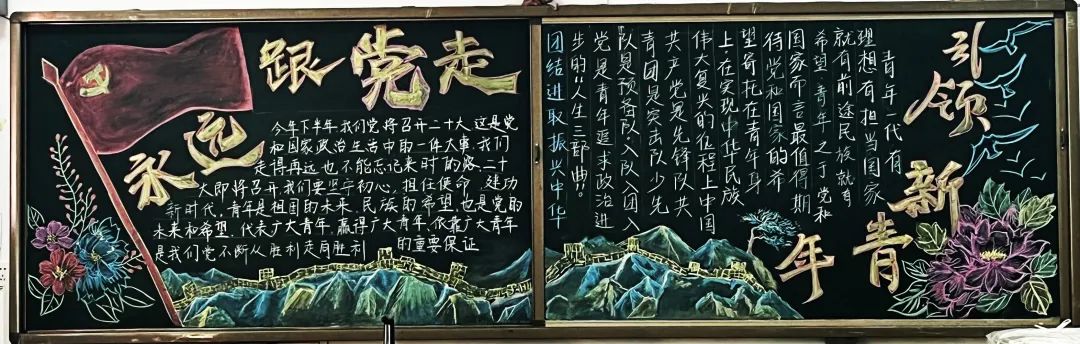 永远
跟党走
今年下半年我们党将召开二十大,这是党
和国家政治生活中的一件大事,我们
走得再远也不能忘记来时的路,二十
大即将召开我们要坚守初心,担任使命,建功
新时代,青年是祖国的未来,民族的希望,也是党的
未来和希望,代表广大青年,赢得广大青年,依靠广大青年
是我们党不断从胜利走向胜利 的重要保证
引领
新
青
年
青年一代有
理想有担当国家
就有前途民族就有
希望青年之于党和
国家而言最值得期
待党和国家的希
望寄托在青年身
上在实现中华民族
伟大复兴的征程上中国
共产党是先锋队共
青团是突击队少先
队是预备队入队入团入
党是青年追求政治进
步的"人生三部曲"。
团结进取振兴中华